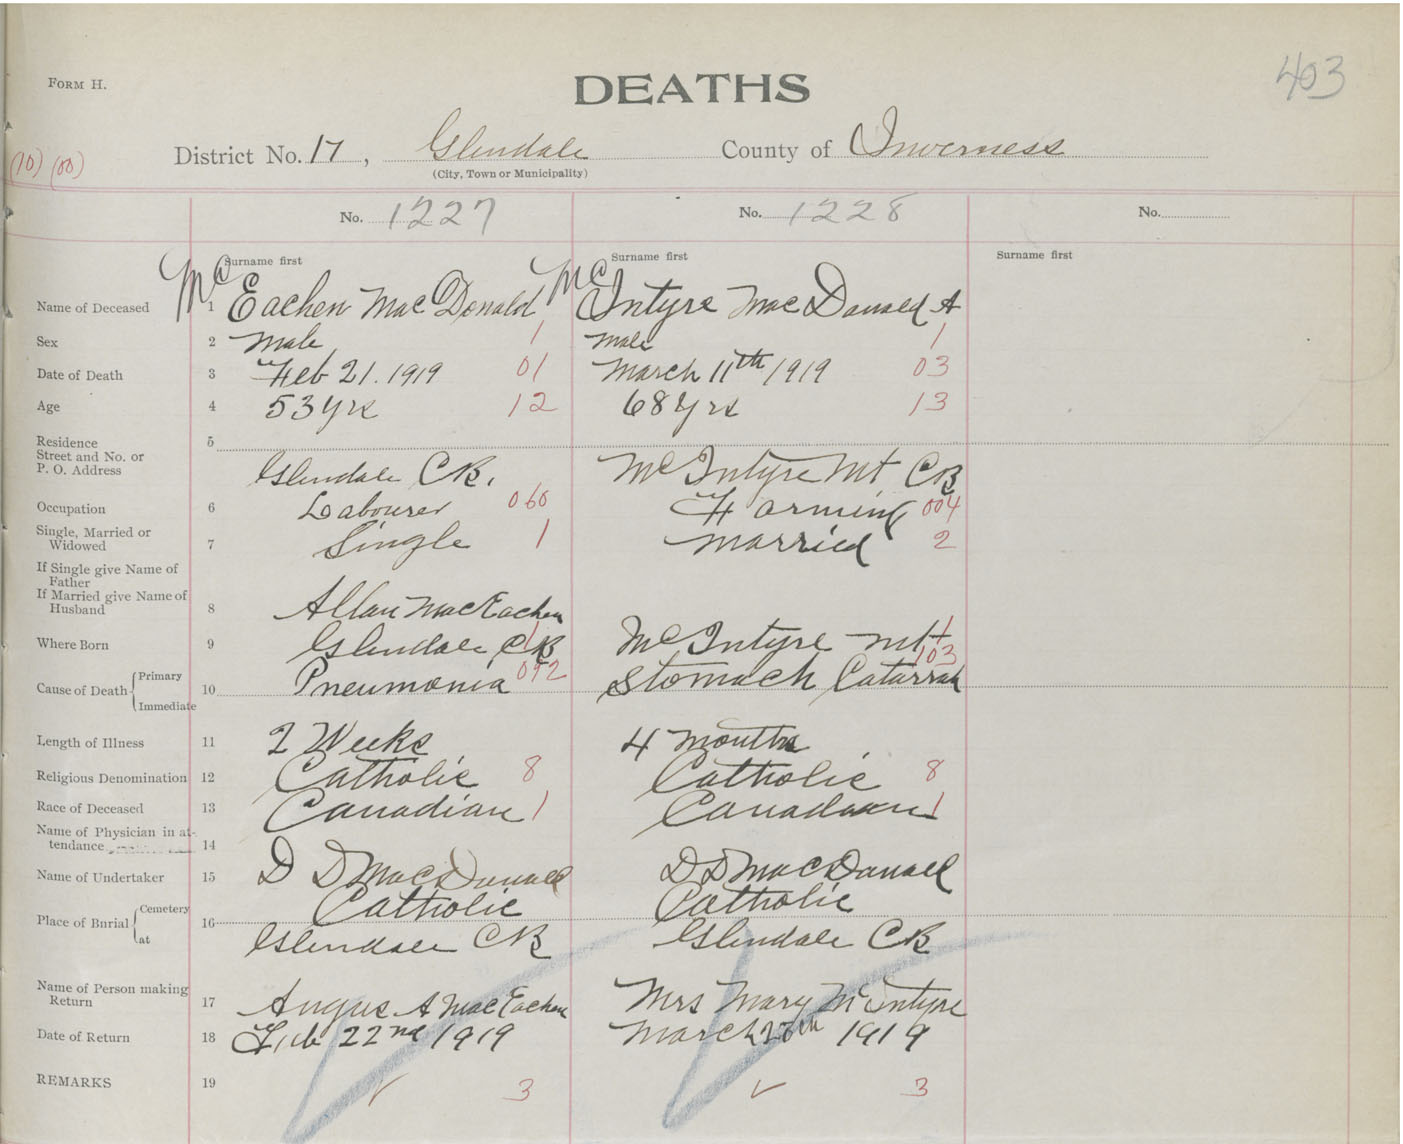 FORM H.
DEATHS
403
(10) (00)
District No. 17, Glendale County of Inverness
(City, Town or Municipality)
No. 1227 No. 1228 No.
Surname first Surname first Surname first
Name of Deceased 1 McEachen MacDonald McIntyre MacDonald A
Sex 2 Male 1 male 1
Date of Death 3 Feb 21. 1919 01 March 11th 1919 03
Age 4 53 yrs 12 68 yrs 13
Residence 5
Street and No. or
P. O. Address Glendale C B. McIntyre Mt CB
Occupation 6 Labourer 060 Farming 004
Single, Married or
Widowed 7 Single 1 married 2
If Single give Name of
Father
If Married give Name of
Husband 8 Allan MacEachen
Where Born 9 Glendale CB 1 McIntyre Mt 1
Cause of Death Primary
Immediate 10 Pneumonia 092 Stomach Catarrah 103
Length of Illness 11 2 Weeks 4 months
Religious Denomination 12 Catholic 8 Catholic 8
Race of Deceased 13 Canadian 1 Canadian 1
Name of Physician in at-
tendance 14
Name of Undertaker 15 D D MacDonald D D MacDonald
Place of Bnrial Cemetery 16 Catholic Catholic
at Glendale CB Glendale CB
Name of Person making
Return 17 Angus A MacEachen Mrs Mary McIntyre
Date of Return 18 Feb 22nd 1919 March 1919
REMARKS 19 3 3